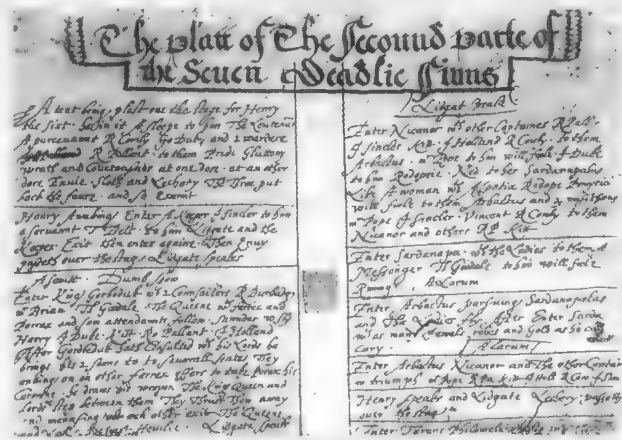 The platt of The Secound parte of
the Seuen Deadlie Sinns
A tent being plast one the stage for Henry
the sixt he in it A sleepe to him The Leutenant
A purceuaunt R Cowly Jo Duke and 1 wardere
R Pallant to them Pride Gluttony
Wrath and Couetousnes at one dore at an other
dore Enuie Sloth and Lechery The Three put
back the foure and so Exeunt
Henry Awaking Enter A Keeper J Sincler to him
a seruaunt T Belt to him Lidgate and the
Keeper Exit then enter againe Then Enuy
passeth ouer the stag Lidgate speakes
A senitt Dumb show
Enter King Gorboduk w 2 Counsailers R Burbadg
Brian Th Goodale The Queene w ferrex and
Porrex and som attendaunts follow Saunder w sly
Harry J Duke Kitt Ro Pallant J Holland
After Gordbeduk hath Consulted w his Lords he
brings his 2 sonns to to seuerall seates They
enuing on on other ferrex offers to take Porrex his
Corowne he draws his weopon The King Queen and
Lords step between them They Thrust Them away
and menasing ech other exit The Queene
Lidgate speaks
Lidgat speake
Enter Nicanor w other Captaines R Pall
J sincler Kitt J Holland R Cowly to them
Arbactus m Pope to him will foole J Duke
to him Rodopeie Ned to her Sardanapalus
Like A woman w Aspatia Rodope Pompeia
will foole to them Arbactus and 3 musitions
m Pope J sincler Vincent R Cowly to them
Nicanor and others R P Kitt
Enter Sardanapa w the Ladies to them A
Messenger Th Goodale to him will foole
Runing A Larum
Enter Arbactus pursuing Sardanapalus
and The Ladies fly After Enter Sarda
w as many Jewels robes and Gold as he ca
cary
A larum
Enter Arbactus Nicanor and The other Captains
in triumph m Pope R Pa Kitt J Holl R Cow J Sin
Henry speaks and Lidgate Lechery passeth
ouer the stag
Enter Tereus Philomele